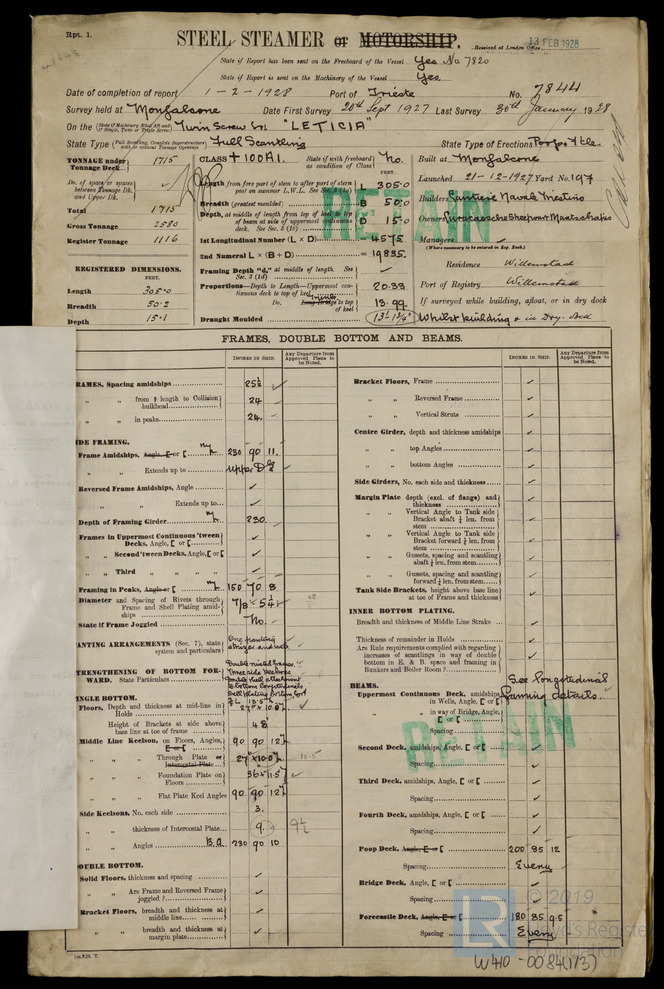 Rpt. 1.
STEEL STEAMER or MOTORSHIP.
13 FEB 1928
Received at London Office
State if Report has been sent on the Freeboard of the Vessel Yes No 7820
State if Report is sent on the Machinery of the Vessel Yes.
Date of completion of report 1-2-1928 Port of Trieste No. 7844
Survey held at Monfalcone Date First Survey 20th Sept 1927 Last Survey 30th January 1928
On the Twin Screw "LETICIA"
State Type Full Scantling State Type of Erections Poop & f'tle.
TONNAGE under Tonnage Deck 1715
Do. of space or spaces between Tonnage Dk. and Upper Dk.
Total 1715
Gross Tonnage
Register Tonnage 1116
REGISTERED DIMENSIONS.
FEET.
Length 305.0
Breadth 50.2
Depth 15.1
CLASS +100A1. State if with freeboard as condition of Class No.
FEET.
Length from fore part of stem to after part of stern post on summer L.W.L. See Sec. 3 (1a) L 305.0
Breadth (greatest moulded) B 50.0
Depth, at middle of length from top of keel to top of beam at side of uppermost continuous deck. See Sec. 3 (1c) D 15.0
1st Longitudinal Number (L × D) = 4575
2nd Numeral L × (B + D) = 19835.
Framing Depth "d," at middle of length. See Sec. 3 (1d) ✓
Proportions—Depth to Length—Uppermost continuous deck to top of keel 20.33
Do. to top of keel 13.99
Draught Moulded 13' 1 3/4"
RETAIN
Built at Monfalcone
Launched 21-12-1927 Yard No. 197
Builders Cantiere Navale Triestino
Owners Curacaosche Scheepvaart Maatschappij
Managers ✓
(Where necessary to be entered in Reg. Book.)
Residence Willemstad
Port of Registry Willemstad
If surveyed while building, afloat, or in dry dock
Whilst building & in Dry-dock
FRAMES, DOUBLE BOTTOM AND BEAMS.
INCHES IN SHIP.
Any Departure from Approved Plans to be Noted.
INCHES IN SHIP.
Any Departure from Approved Plans to be Noted.
RAMES, Spacing amidships 25½ ✓
" " from ⅕ length to Collision bulkhead 24 ✓
" " in peaks 24. ✓
IDE FRAMING.
Frame Amidships, Angle, [ or [ 230 90 11.
" " Extends up to Upper Dk ✓
Reversed Frame Amidships, Angle ✓
" " Extends up to ✓
Depth of Framing Girder 230.
Frames in Uppermost Continuous 'tween Decks, Angle, [ or [ ✓
" " Second 'tween Decks, Angle, [ or [ ✓
" " Third " " " " ✓
Framing in Peaks, Angle or [ 150 70 8
Diameter and Spacing of Rivets through Frame and Shell Plating amidships 7/8 - 5¼ ✓
State if Frame Joggled No.
ANTING ARRANGEMENTS (Sec. 7), state system and particulars
One panting stringer
TRENGTHENING OF BOTTOM FORWARD. State Particulars
INGLE BOTTOM.
Floors, Depth and thickness at mid-line in Holds
Height of Brackets at side above base line at toe of frame 48
Middle Line Keelson, on Floors, Angles, [ or [ 90 90 12
" " Through Plate or Intercostal Plate
" " Foundation Plate on Floors 36×11.5
" " Flat Plate Keel Angles 90 90 12
Side Keelsons, No. each side 3.
" " thickness of Intercostal Plate 9. 9½
" " Angles B.A. 230 90 10
OUBLE BOTTOM.
Solid Floors, thickness and spacing ✓
" " Are Frame and Reversed Frame joggled? ✓
Bracket Floors, breadth and thickness at middle line ✓
" " breadth and thickness at margin plate ✓
Bracket Floors, Frame ✓
" " Reversed Frame ✓
" " Vertical Struts ✓
Centre Girder, depth and thickness amidships ✓
" " top Angles ✓
" " bottom Angles ✓
Side Girders, No. each side and thickness ✓
Margin Plate depth (excl. of flange) and thickness ✓
" " Vertical Angle to Tank side Bracket abaft ¼ len. from stem ✓
" " Vertical Angle to Tank side Bracket forward ¼ len. from stem ✓
" " Gussets, spacing and scantling abaft ¼ len. from stem ✓
" " Gussets, spacing and scantling forward ¼ len. from stem ✓
Tank Side Brackets, height above base line at toe of Frame and thickness ✓
INNER BOTTOM PLATING.
Breadth and thickness of Middle Line Strake ✓
Thickness of remainder in Holds ✓
Are Rule requirements complied with regarding increases of scantlings in way of double bottom in E. & B. space and framing in Bunkers and Boiler Room? ✓
BEAMS.
See longitudinal framing details.
Uppermost Continuous Deck, amidships in Wells, Angle, [ or [
" " in way of Bridge, Angle, [ or [
Spacing
Second Deck, amidships, Angle, [ or [ ✓
Spacing ✓
Third Deck, amidships, Angle, [ or [ ✓
Spacing ✓
Fourth Deck, amidships, Angle, [ or [ ✓
Spacing ✓
Poop Deck, Angle, [ or [ 200 85 12
Spacing Every
Bridge Deck, Angle, [ or [ ✓
Spacing ✓
Forecastle Deck, Angle, [ or [ 180 85 9.5
Spacing Every
RETAIN
LR
© 2019
Lloyd's Register
Foundation
W410-0084(1/3)